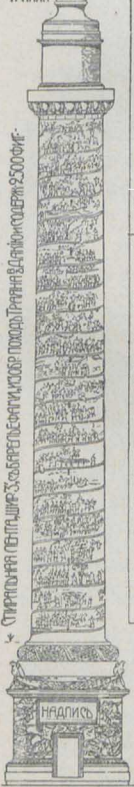 СПИРАЛЬНАЯ ЛЕНТА, ШИР. 3', СЪ БАРЕЛЬЕФАМИ, ИЗОБР. ПОХОДЪ ТРАЯНА ВЪ ДАКІЮ И СОДЕРЖ. 2500 ФИГ-
НАДПИСЬ